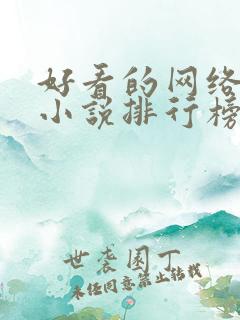 好看的网络
小说排行榜
世袭园丁
未经同意禁止转载